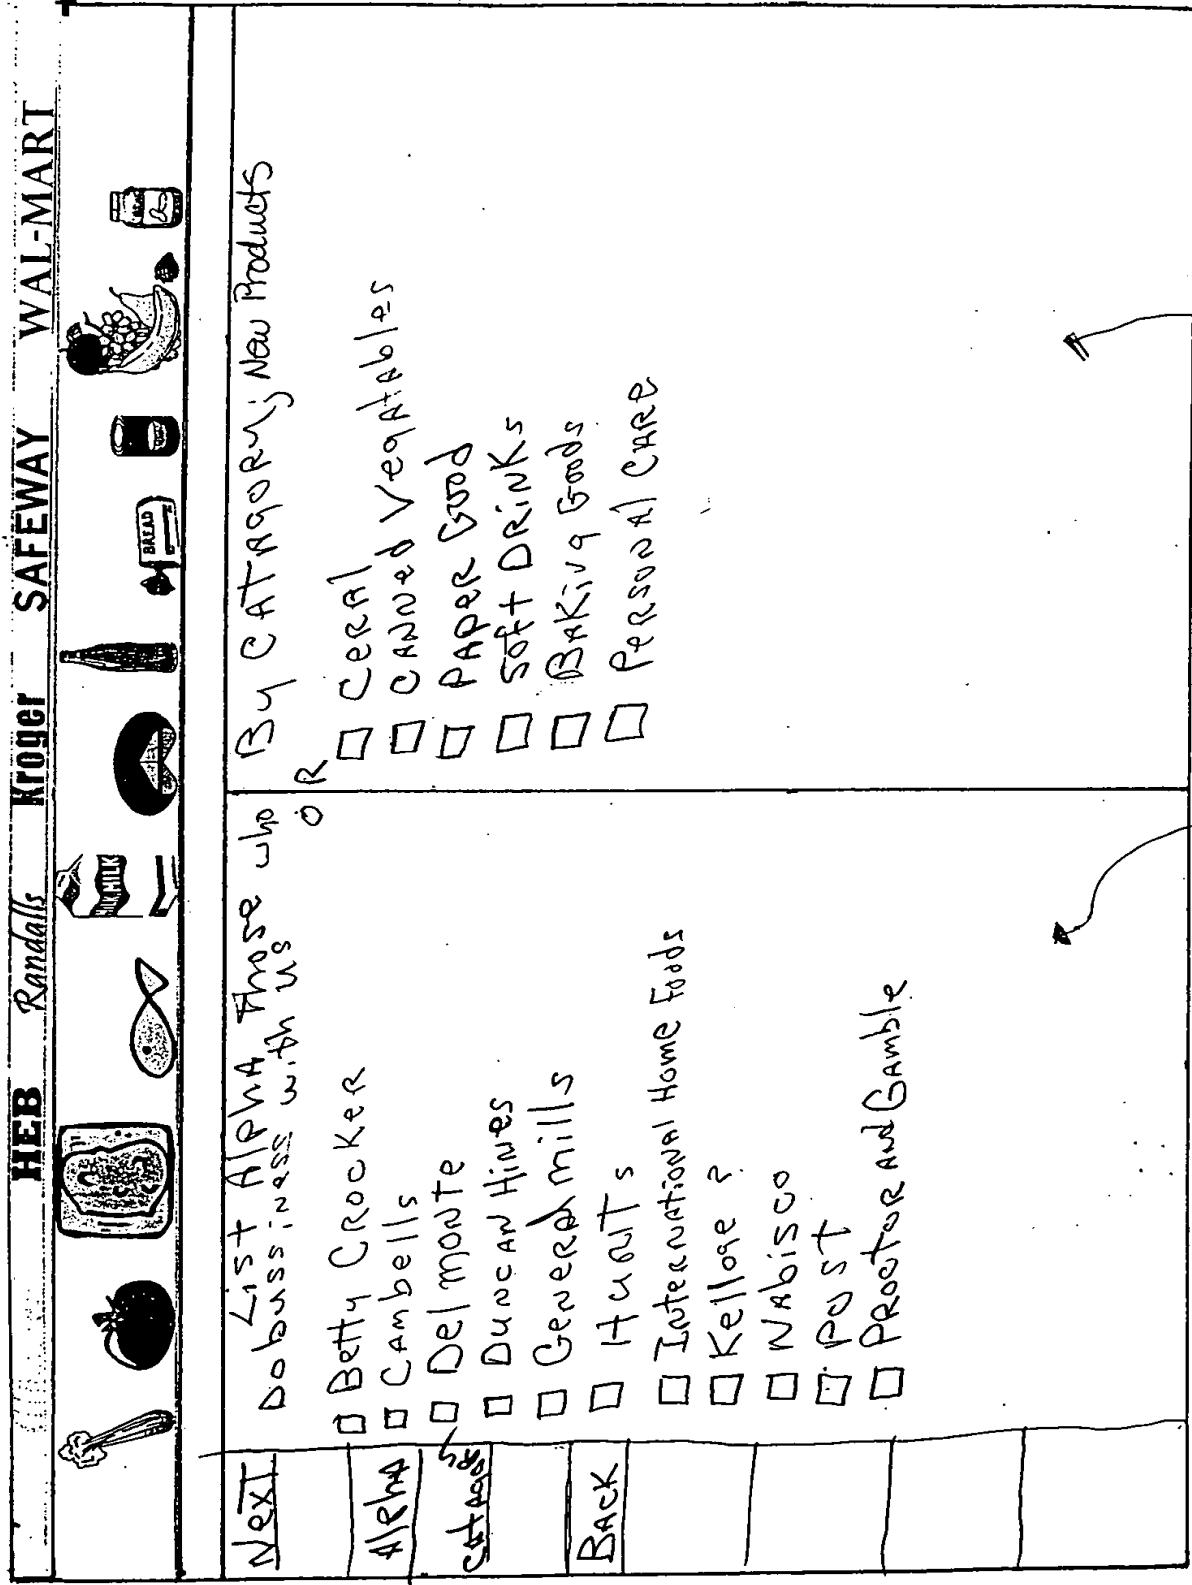 HEB Randalls Kroger SAFEWAY WAL-MART
MILK
BREAD
Next
Alpha
Back
List Alpha Those who
Do bussiness with us
OR
Betty Crocker
Cambells
Delmonte
Duncan Hines
General mills
Hunts
International Home Foods
Kelloge ?
Nabisco
Post
Proctor and Gamble
By Catagory; New Products
Ceral
Canned Vegatables
Paper Good
Soft Drinks
Baking Goods
Personal Care